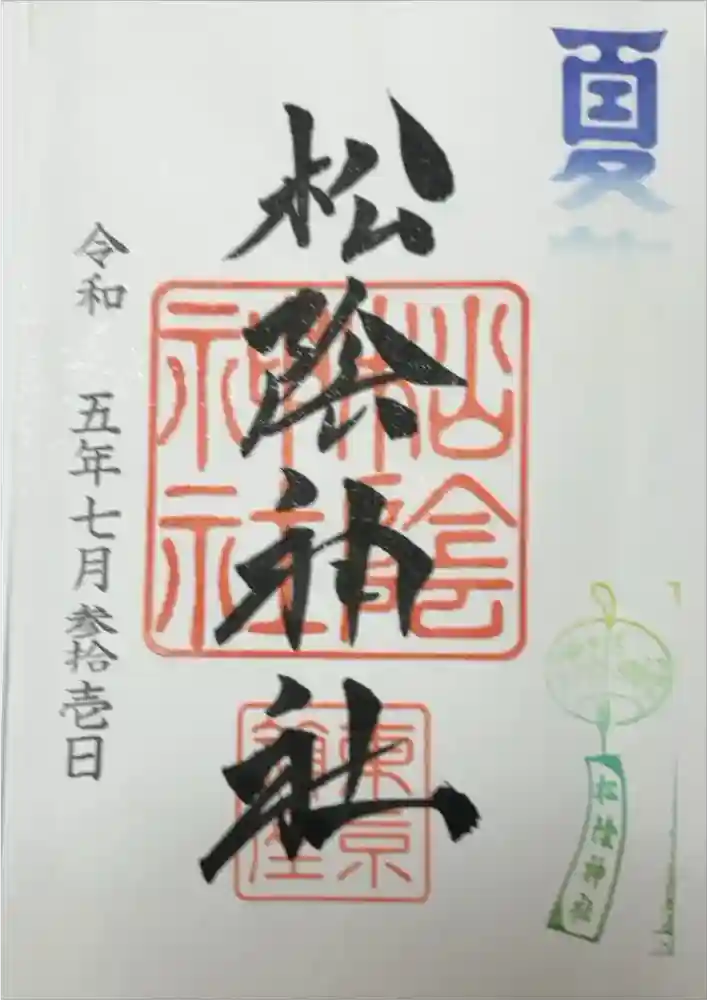 夏
松陰神社
松陰神社
松陰神社
東京
令和 五年七月参拾壱日